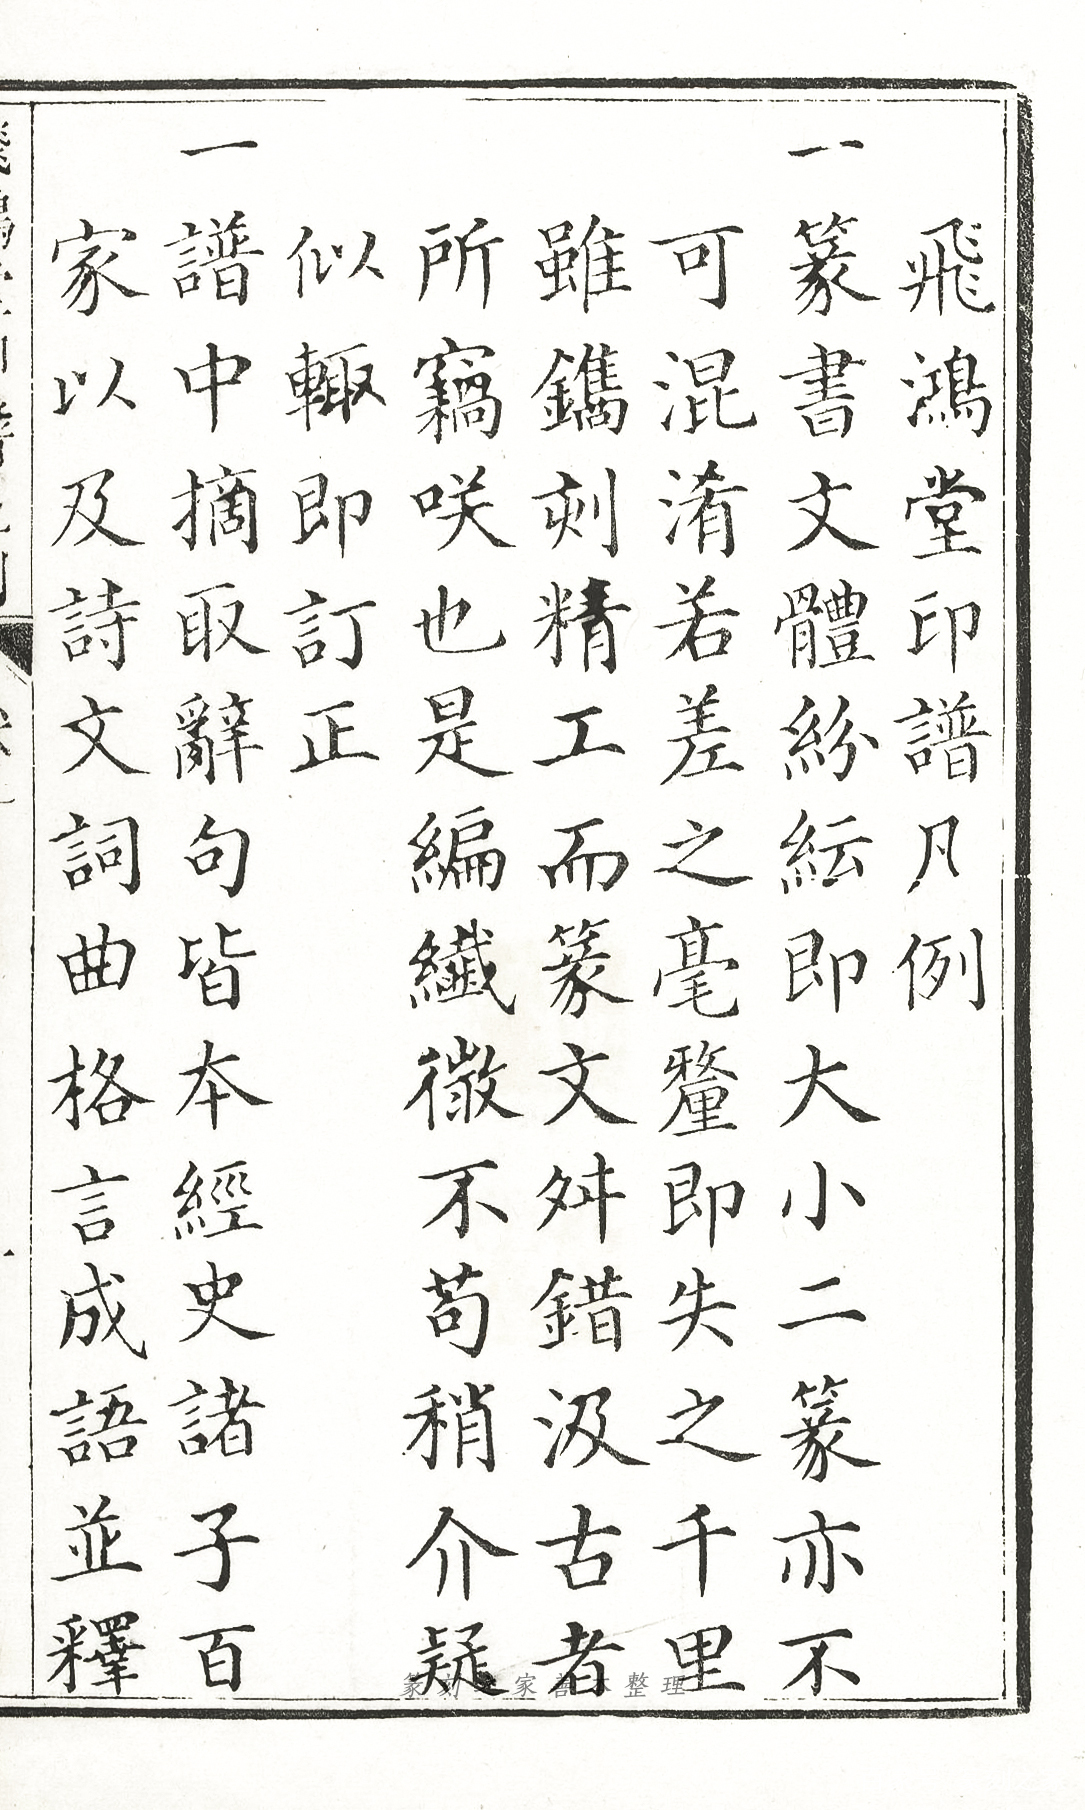 飛鴻堂印譜凡例
一篆書文體紛紜即大小二篆亦不
可混淆若差之毫釐即失之千里
雖鐫刻精工而篆文舛錯汲古者
所竊咲也是編纖微不苟稍介疑
似輒即訂正
一譜中摘取辭句皆本經史諸子百
家以及詩文詞曲格言成語並釋
篆刻 家善本整理